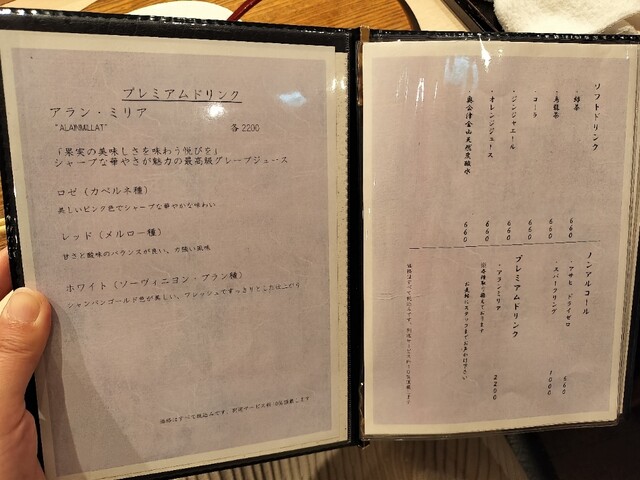 プレミアムドリンク
アラン・ミリア
"ALAINMILLAT" 各2200
「果実の美味しさを味わう悦びを」
シャープな華やさが魅力の最高級グレープジュース
ロゼ（カベルネ種）
美しいピンク色でシャープな華やかな味わい
レッド（メルロー種）
甘さと酸味のバランスが良い、力強い風味
ホワイト（ソーヴィニヨン・ブラン種）
シャンパンゴールド色が美しい、フレッシュですっきりとした仕上がり
価格はすべて税込みです。別途サービス料
ソフトドリンク
緑茶 660
・烏龍茶 660
・コーラ 660
・ジンジャエール 660
・オレンジジュース 660
・奥会津金山天然炭酸水 660
ノンアルコール
・アサヒ ドライゼロ 660
・スパークリング 1000
プレミアムドリンク
・アランミリア 2200
※各種取り揃えております
お気軽にスタッフまでお声がけ下さい
価格はすべて税込みです。別途サービス料